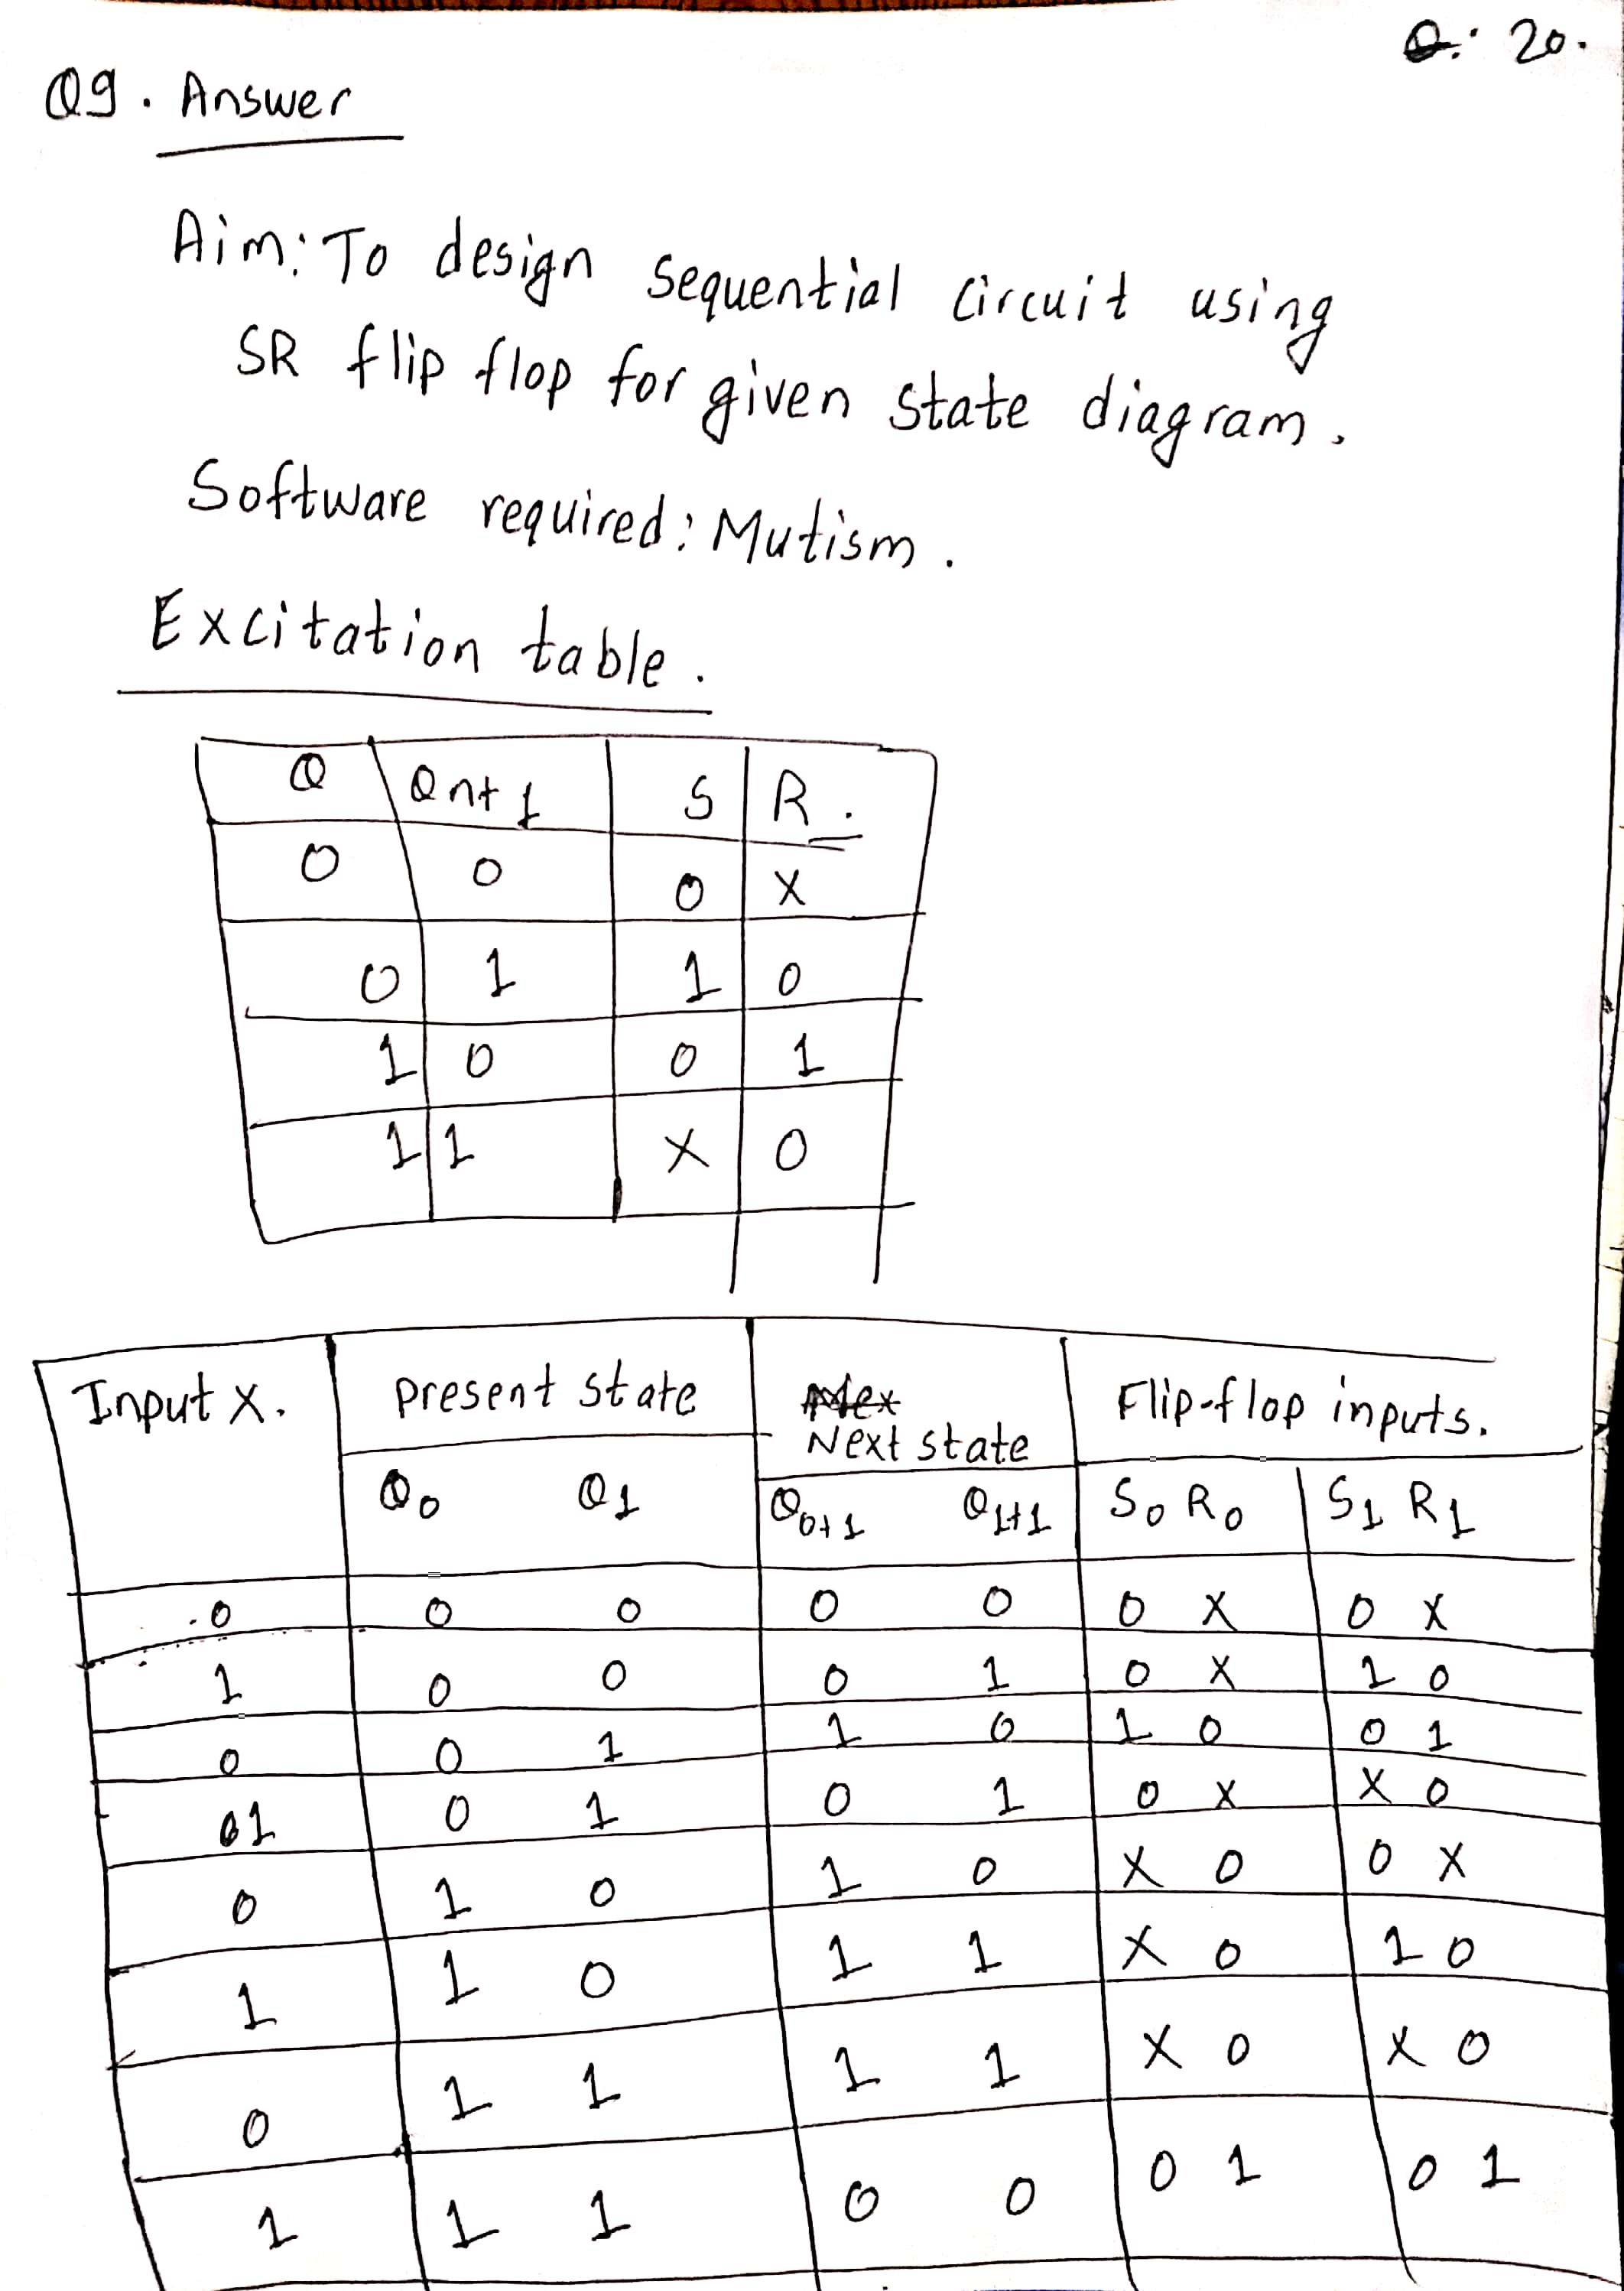 Q: 20.
Q9. Answer
Aim: To design sequential circuit using
SR flip flop for given state diagram.
Software required: Mutism.
Excitation table.
Q Qn+1 S R.
0 0 0 X
0 1 1 0
1 0 0 1
1 1 X 0
Input X. Present state Next state Flip-flop inputs.
Q0 Q1 Q0+1 Q1+1 S0 R0 S1 R1
0 0 0 0 0 0 X 0 X
1 0 0 0 1 0 X 1 0
0 0 1 1 0 1 0 0 1
01 0 1 0 1 0 X X 0
0 1 0 1 0 X 0 0 X
1 1 0 1 1 X 0 1 0
0 1 1 1 1 X 0 X 0
1 1 1 0 0 0 1 0 1